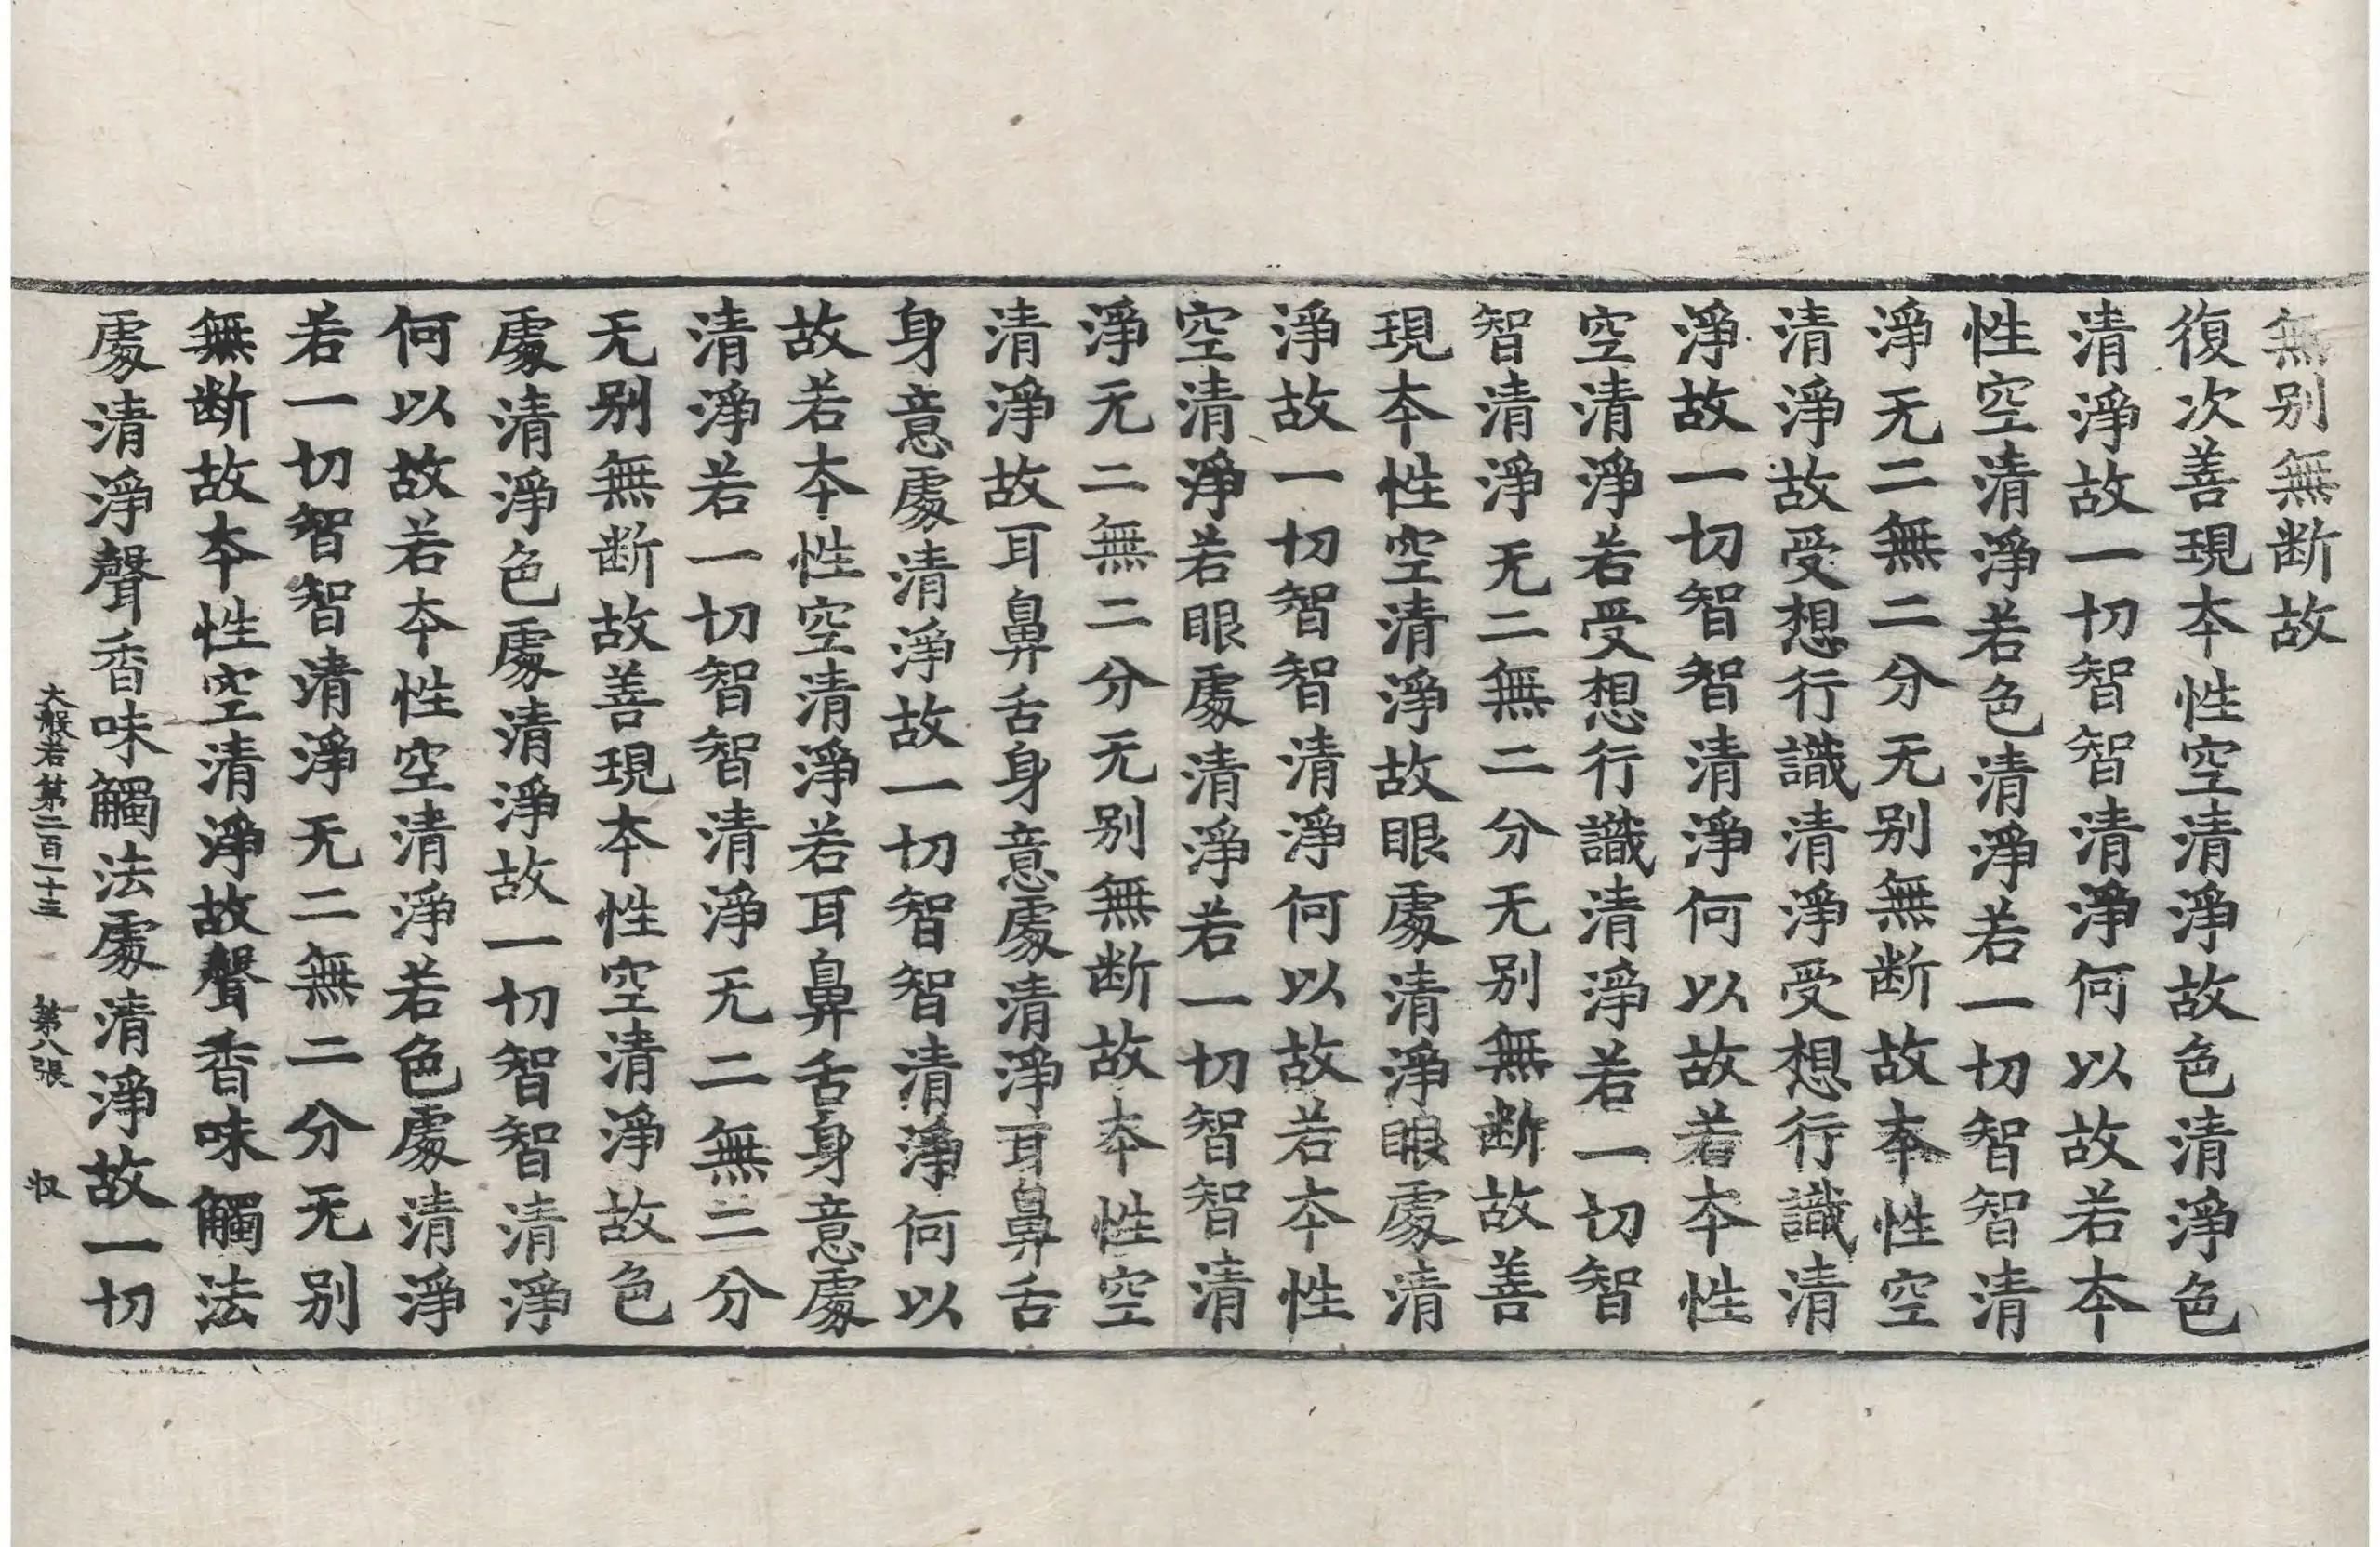 無别無断故
復次善現夲性空清淨故色清淨色
清淨故一切智智清淨何以故若夲
性空清淨若色清淨若一切智智清
淨无二無二分无别無断故夲性空
清淨故受想行識清淨受想行識清
淨故一切智智清淨何以故若夲性
空清淨若受想行識清淨若一切智
智清淨无二無二分无别無断故善
現夲性空清淨故眼處清淨眼處清
淨故一切智智清淨何以故若夲性
空清淨若眼處清淨若一切智智清
淨无二無二分无别無断故夲性空
清淨故耳鼻舌身意處清淨耳鼻舌
身意處清淨故一切智智清淨何以
故若夲性空清淨若耳鼻舌身意處
清淨若一切智智清淨无二無二分
无别無断故善現夲性空清淨故色
處清淨色處清淨故一切智智清淨
何以故若夲性空清淨若色處清淨
若一切智智清淨无二無二分无别
無断故夲性空清淨故聲香味觸法
處清淨聲香味觸法處清淨故一切
大般若第二百一十三 第八張 収